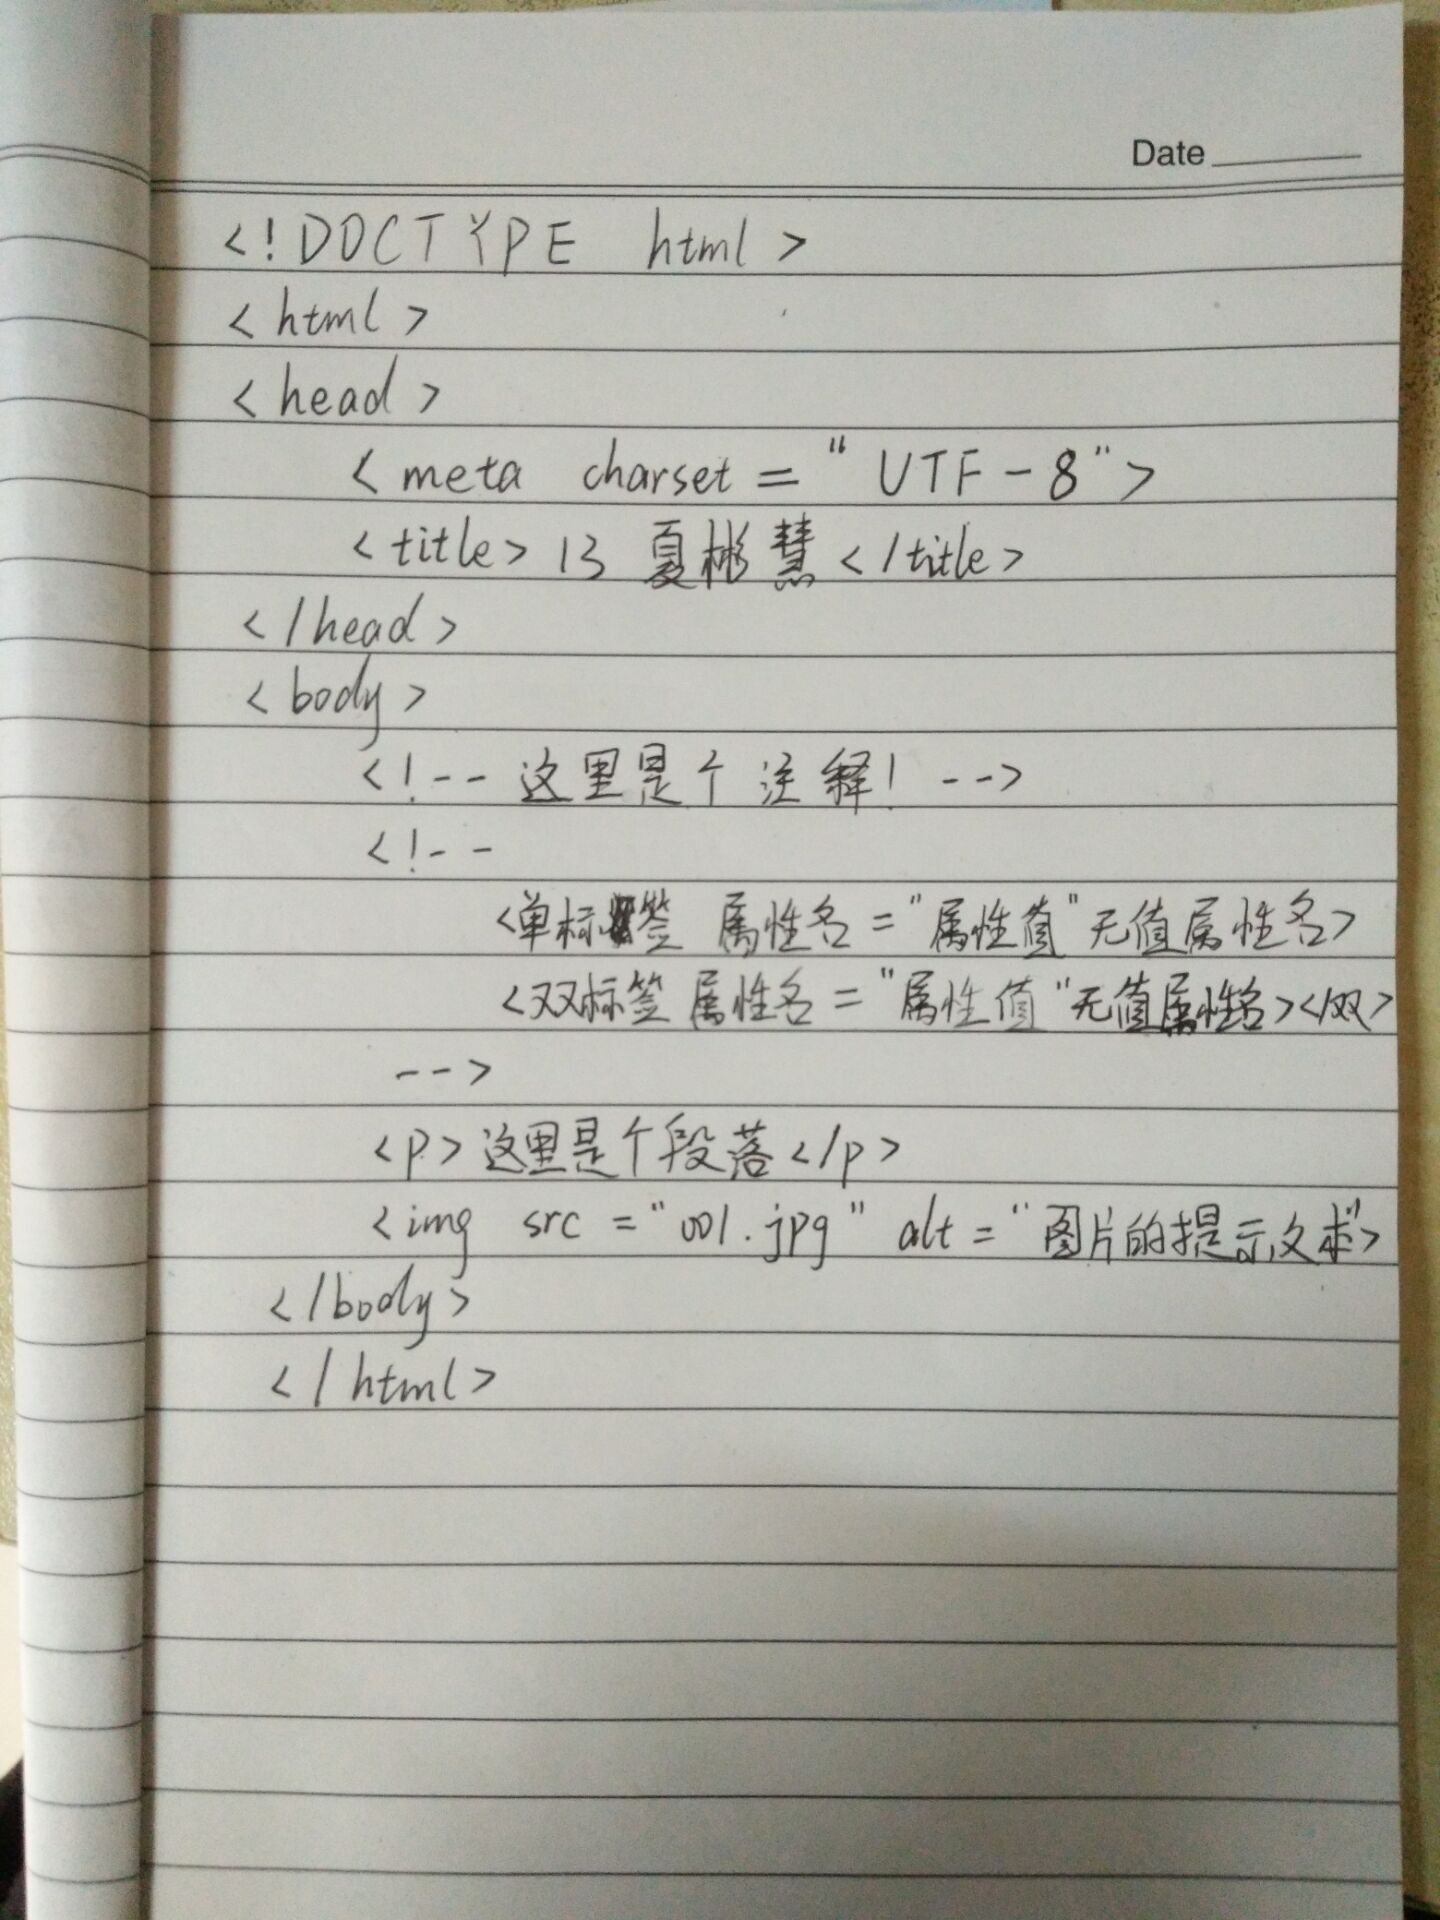 Date
<!DOCTYPE html>
<html>
<head>
<meta charset="UTF-8">
<title>13 夏彬慧</title>
</head>
<body>
<!-- 这里是个注释! -->
<!--
<单标签 属性名="属性值"无值属性名>
<双标签 属性名="属性值"无值属性名></双>
-->
<p>这里是个段落</p>
<img src="001.jpg" alt="图片的提示文本">
</body>
</html>